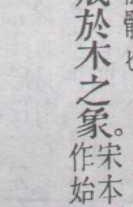 體也
成於木之象。宋本
作始